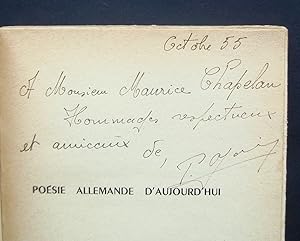 Octobre 55
A Monsieur Maurice Chapelan
Hommages respectueux
et amicaux de,
POÉSIE ALLEMANDE D'AUJOURD'HUI